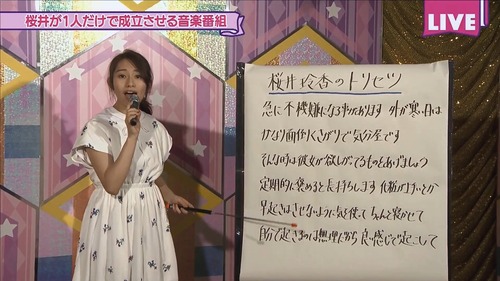 桜井が1人だけで成立させる音楽番組
LIVE
桜井玲香のトリセツ
急に不機嫌になる時があります 外が寒い日は
かなり面倒くさがりで気分屋です
そんな時は彼女が欲しがってるものをあげましょう
定期的に褒めると長持ちします 化粧が
早起きはさせないように気を使って ちゃんと寝かせて
自分で起きるのは無理だから 良い感じで起こして